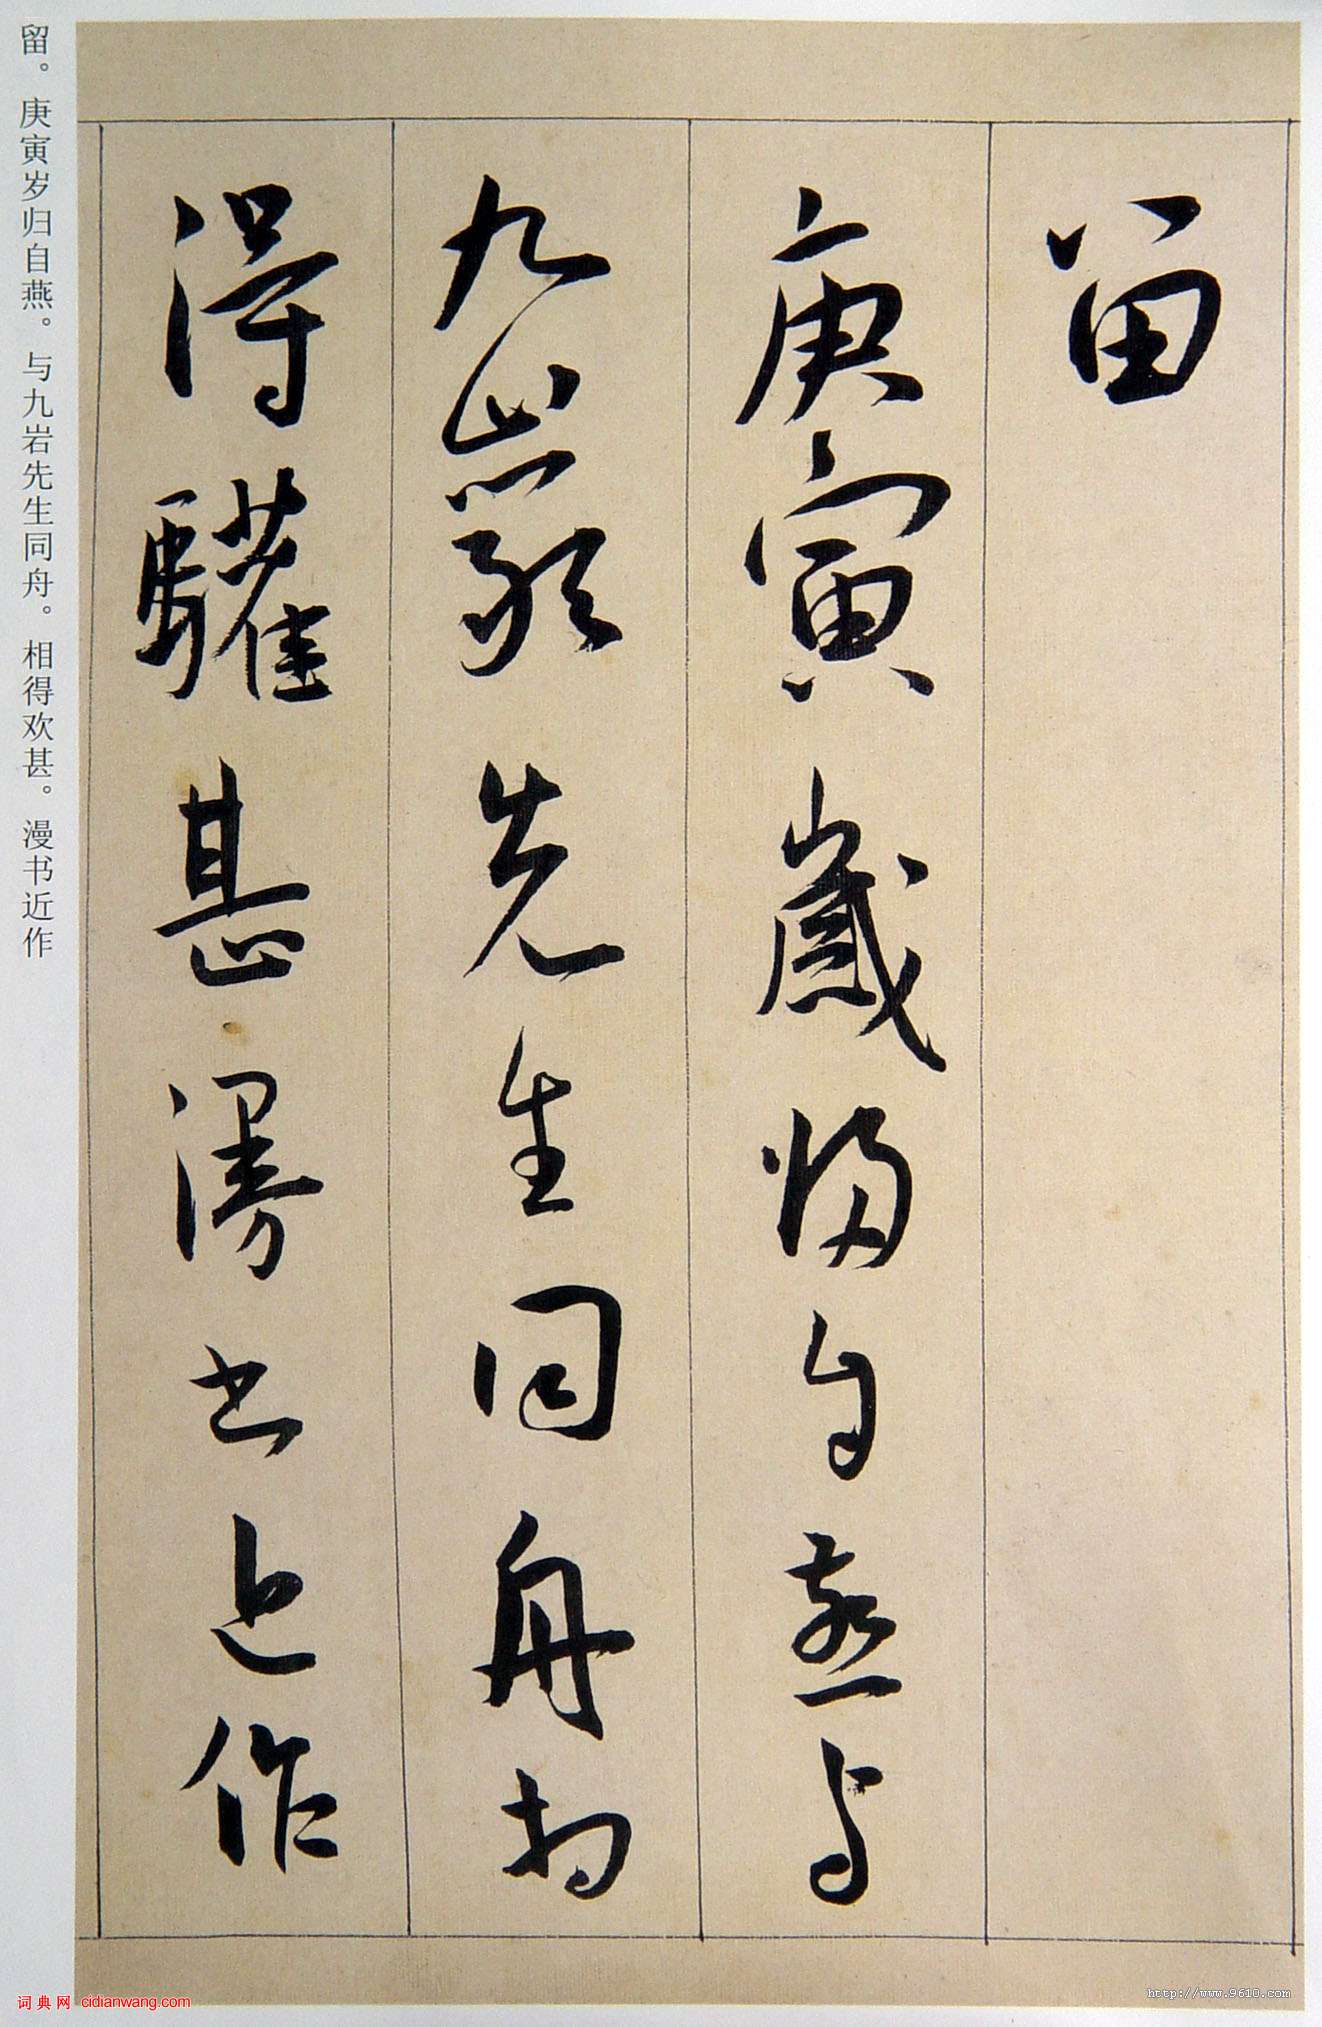 留
庚寅歲歸自燕与
九巖先生同舟相
得驩甚漫书近作
留。庚寅岁归自燕。与九岩先生同舟。相得欢甚。漫书近作
词典网 cidianwang.com
http://www.9610.com